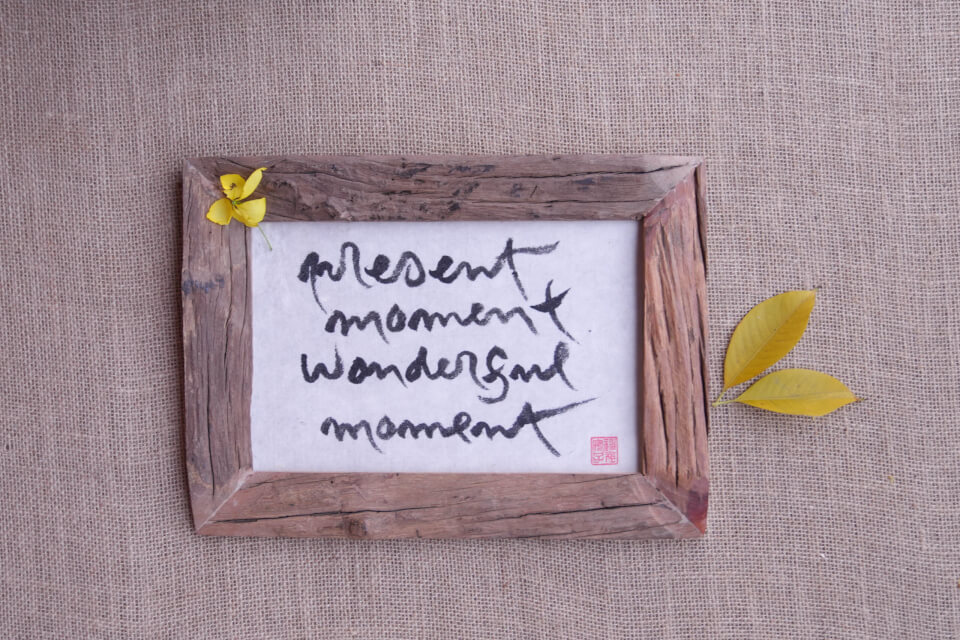 present
moment
wonderful
moment